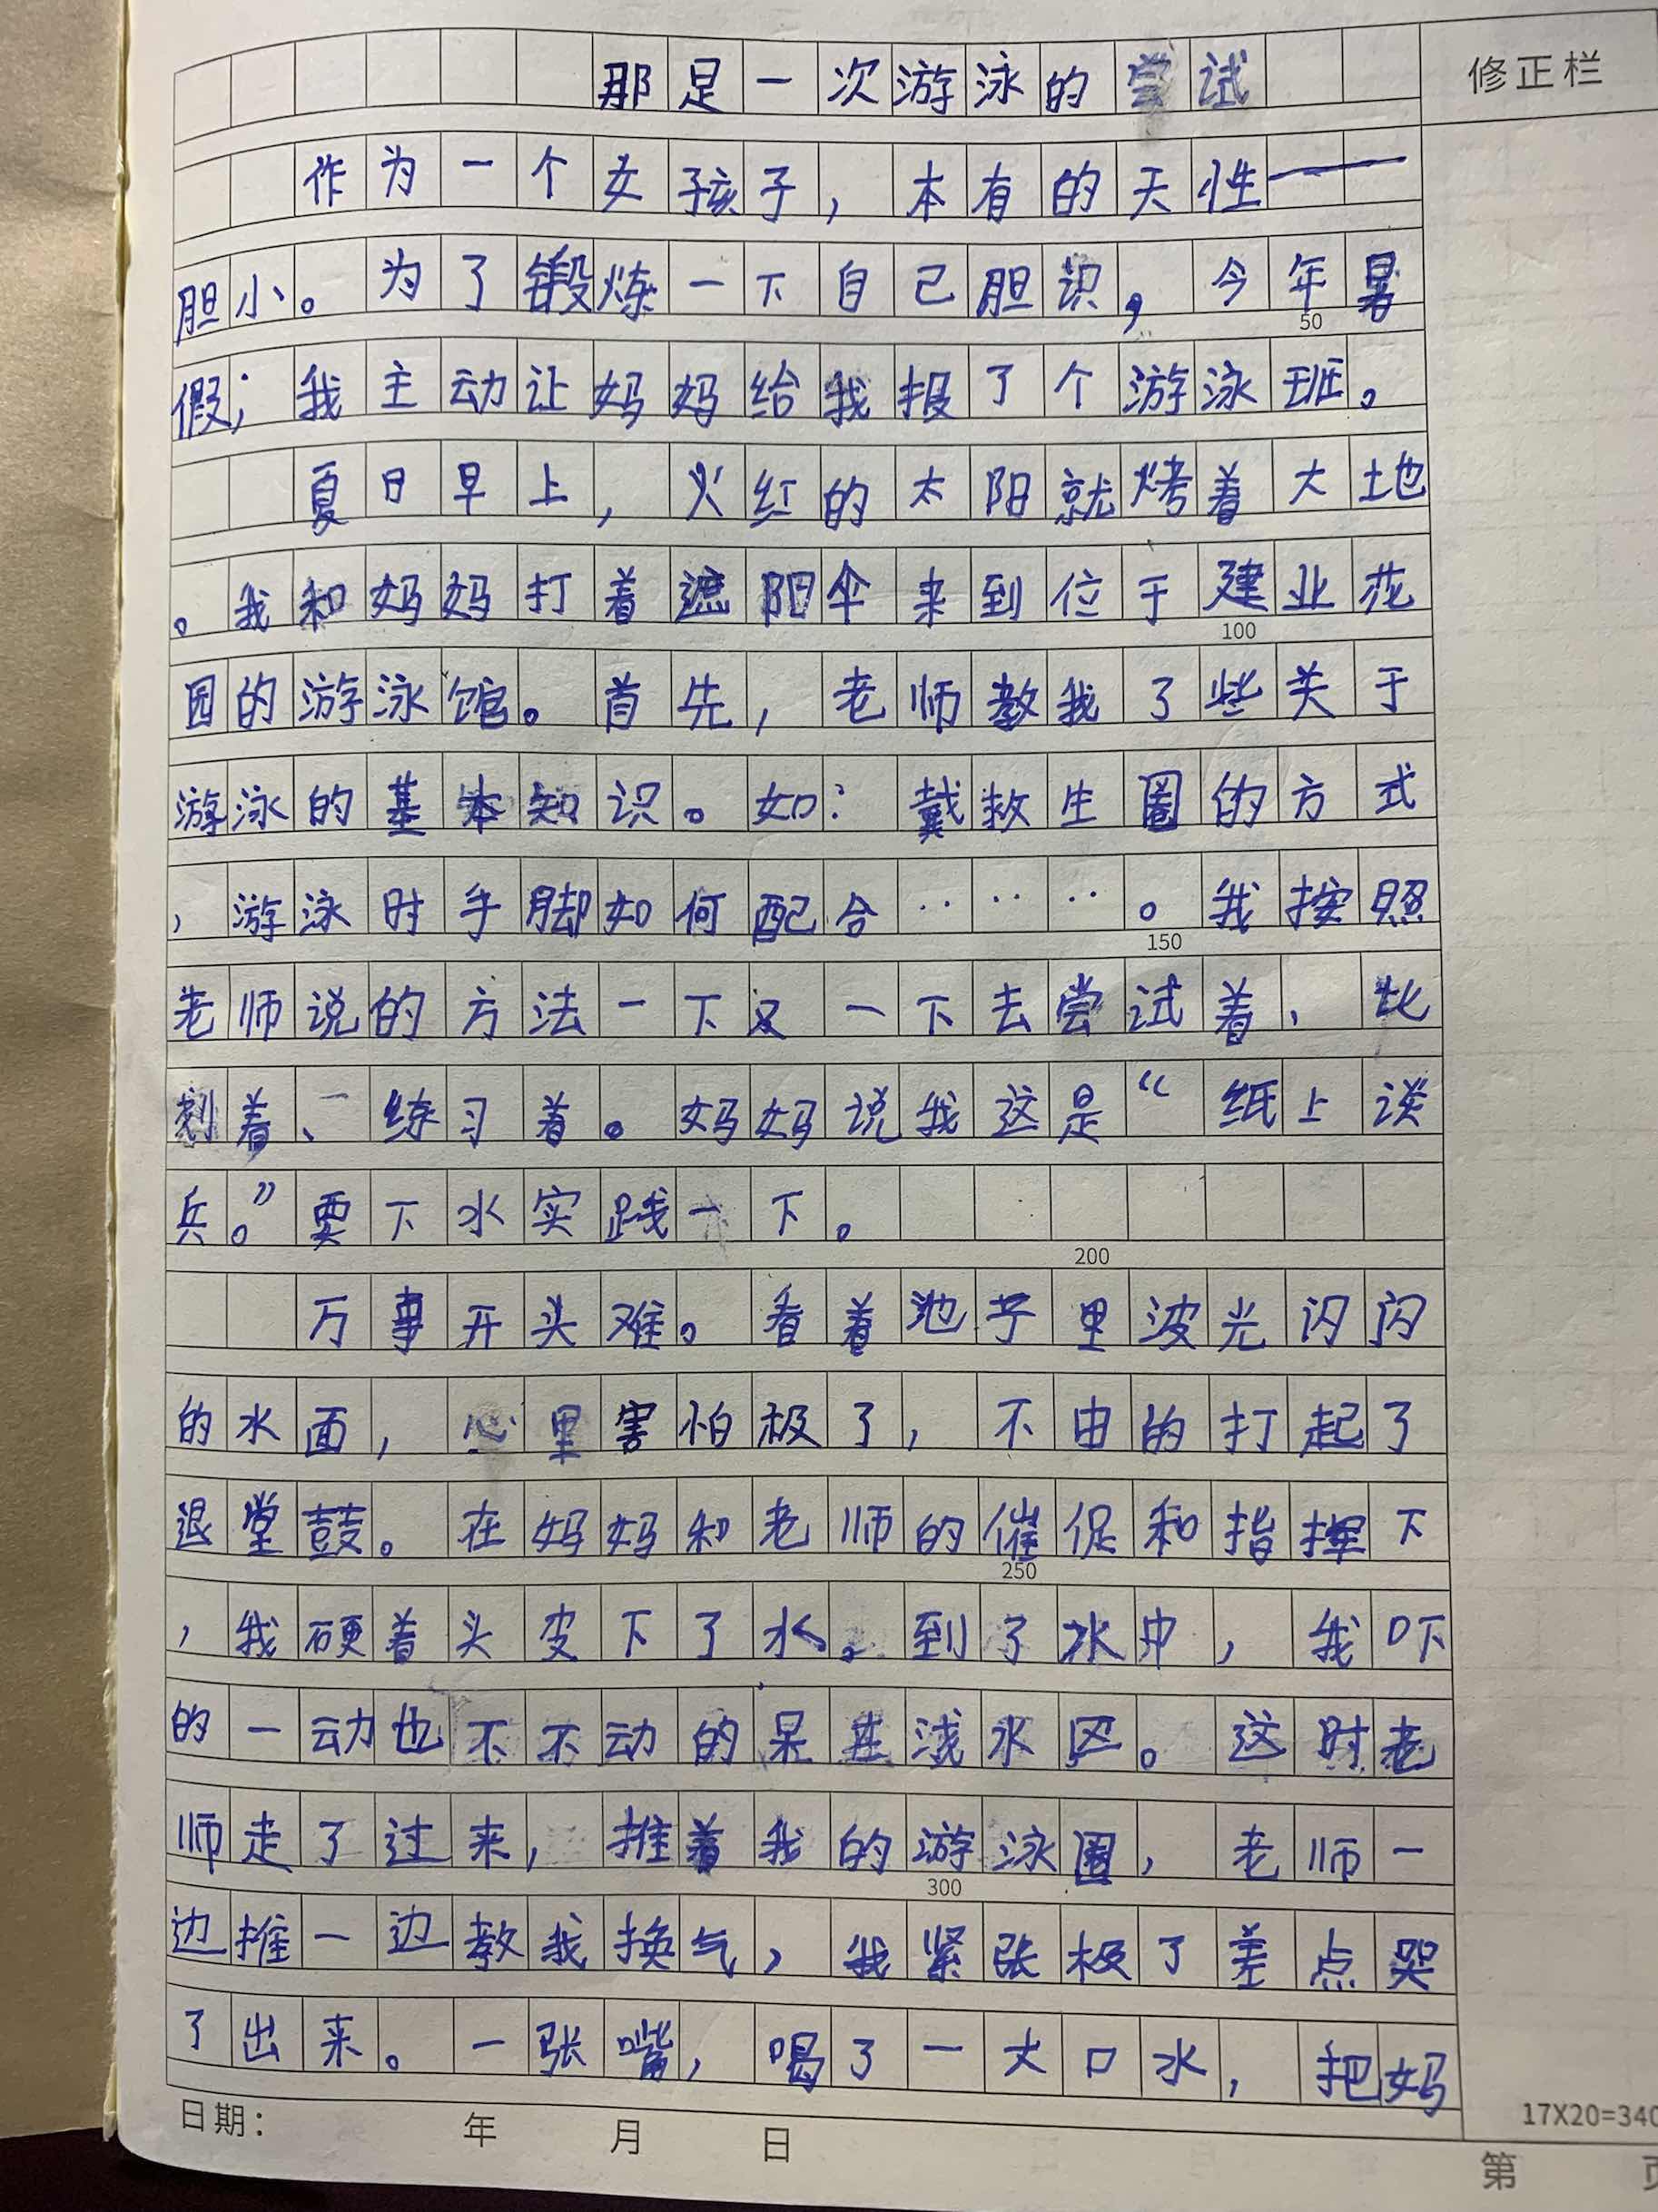 那是一次游泳的尝试
修正栏
作为一个女孩子，本有的天性——
胆小。为了锻炼一下自己胆识，今年暑
50
假；我主动让妈妈给我报了个游泳班。
夏日早上，火红的太阳就烤着大地
。我和妈妈打着遮阳伞来到位于建业花
100
园的游泳馆。首先，老师教我了些关于
游泳的基本知识。如：戴救生圈的方式
，游泳时手脚如何配合……。我按照
150
老师说的方法一下又一下去尝试着、比
划着、练习着。妈妈说我这是“纸上谈
兵。”要下水实践一下。
200
万事开头难。看着池子里波光闪闪
的水面，心里害怕极了，不由的打起了
退堂鼓。在妈妈和老师的催促和指挥下
250
，我硬着头皮下了水。到了水中，我吓
的一动也不不动的呆在浅水区。这时老
师走了过来，推着我的游泳圈，老师一
300
边推一边教我换气，我紧张极了差点哭
了出来。一张嘴，喝了一大口水，把妈
日期： 年 月 日
17X20=340
第 页